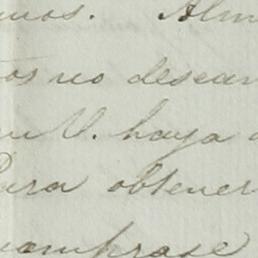 mos. Alm
tos no descan
V. haya
Para obtener
nombrase